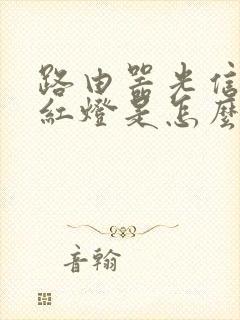 路由器光信
紅燈是怎麼
音翰